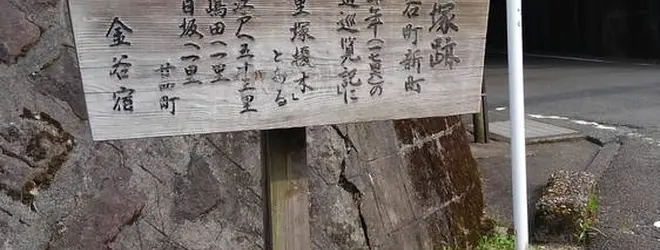 塚跡
石町新町
年(一七八三)の
道巡覧記に
里塚榎木」
とある
江戸へ五十三里
嶋田へ一里
日坂へ一里
廿四町
金谷宿